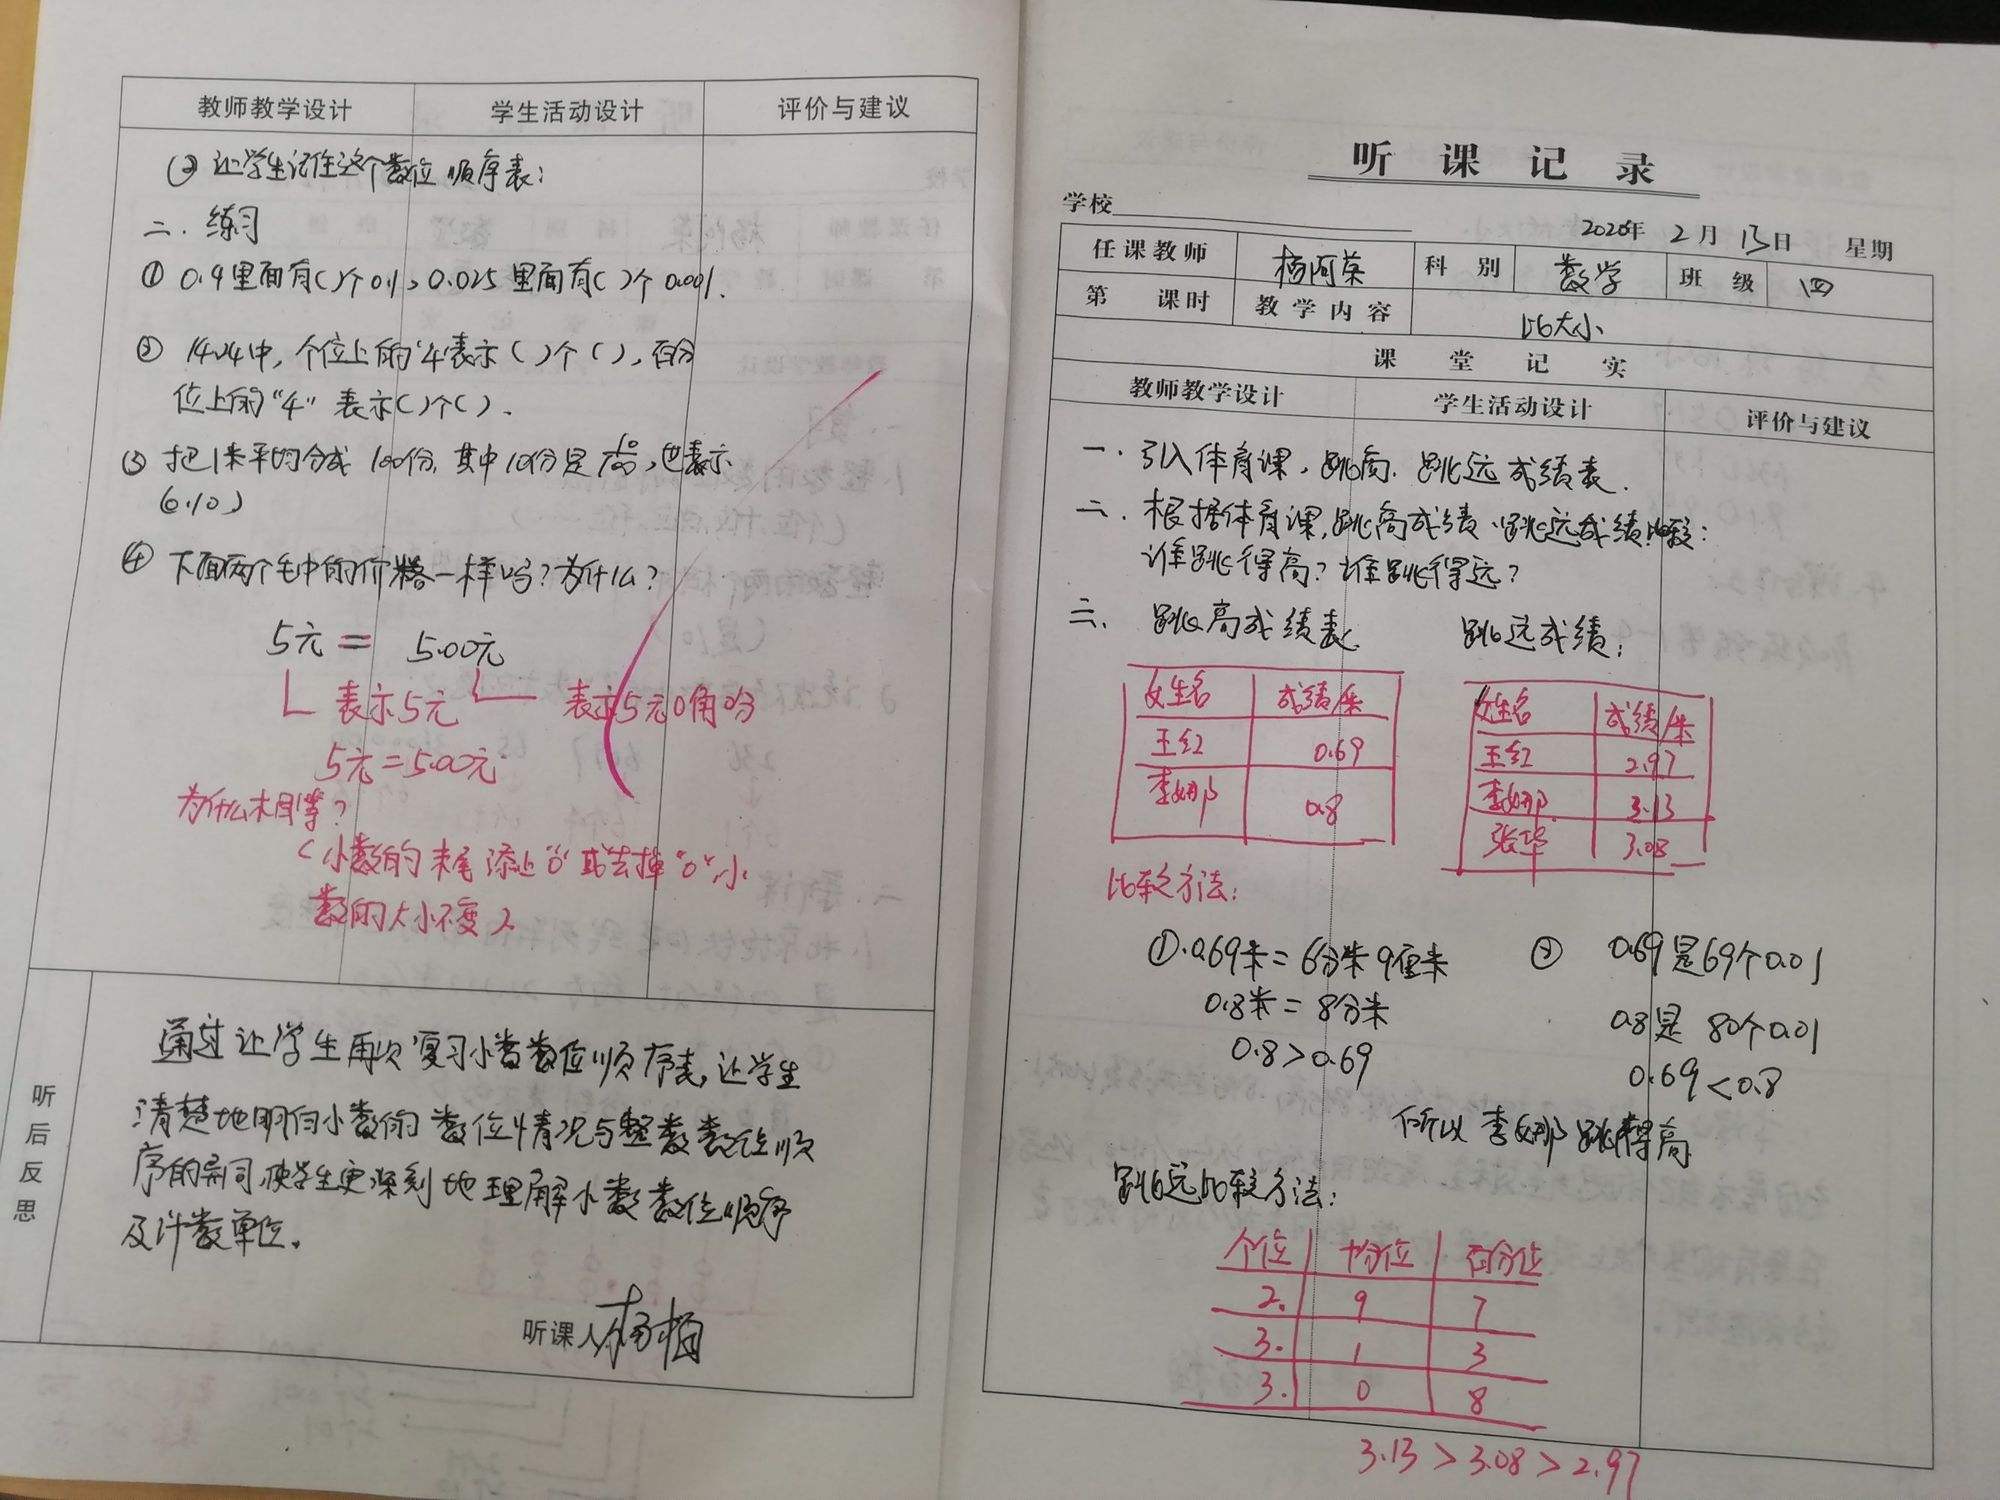 教师教学设计 学生活动设计 评价与建议
② 让学生记住这个数位顺序表:
二. 练习
① 0.9里面有( )个0.1, 0.025里面有( )个0.001.
② 14.04中, 个位上的"4"表示( )个( ), 百分
位上的"4"表示( )个( ).
③ 把1米平均分成100份, 其中10份是10/100, 也表示
(0.10)
④ 下面两个毛巾的价格一样吗? 为什么?
5元 = 5.00元
表示5元 表示5元0角0分
5元=5.00元
为什么相等?
(小数的末尾添上"0"或去掉"0", 小
数的大小不变)
听后反思
通过让学生再次复习小数数位顺序表, 让学生
清楚地明白小数的数位情况与整数数位顺
序的异同, 使学生更深刻地理解小数数位顺序
及计数单位.
听课人
听课记录
学校
2020年 2月 13日 星期
任课教师 杨阿荣 科别 数学 班级 四
第 课时 教学内容 比大小
课堂记实
教师教学设计 学生活动设计 评价与建议
一. 引入体育课, 跳高. 跳远成绩表.
二. 根据体育课, 跳高成绩、跳远成绩比较:
谁跳得高? 谁跳得远?
三. 跳高成绩表 跳远成绩:
女生名 成绩/米
王红 0.69
李娜 0.8
女生名 成绩/米
王红 2.97
李娜 3.13
张华 3.08
比较方法:
①.0.69米=6分米9厘米
0.8米=8分米
0.8>0.69
② 0.69是69个0.01
0.8是 80个0.01
0.69<0.8
所以 李娜跳得高
跳远比较方法:
个位 十分位 百分位
2. 9 7
3. 1 3
3. 0 8
3.13>3.08>2.97